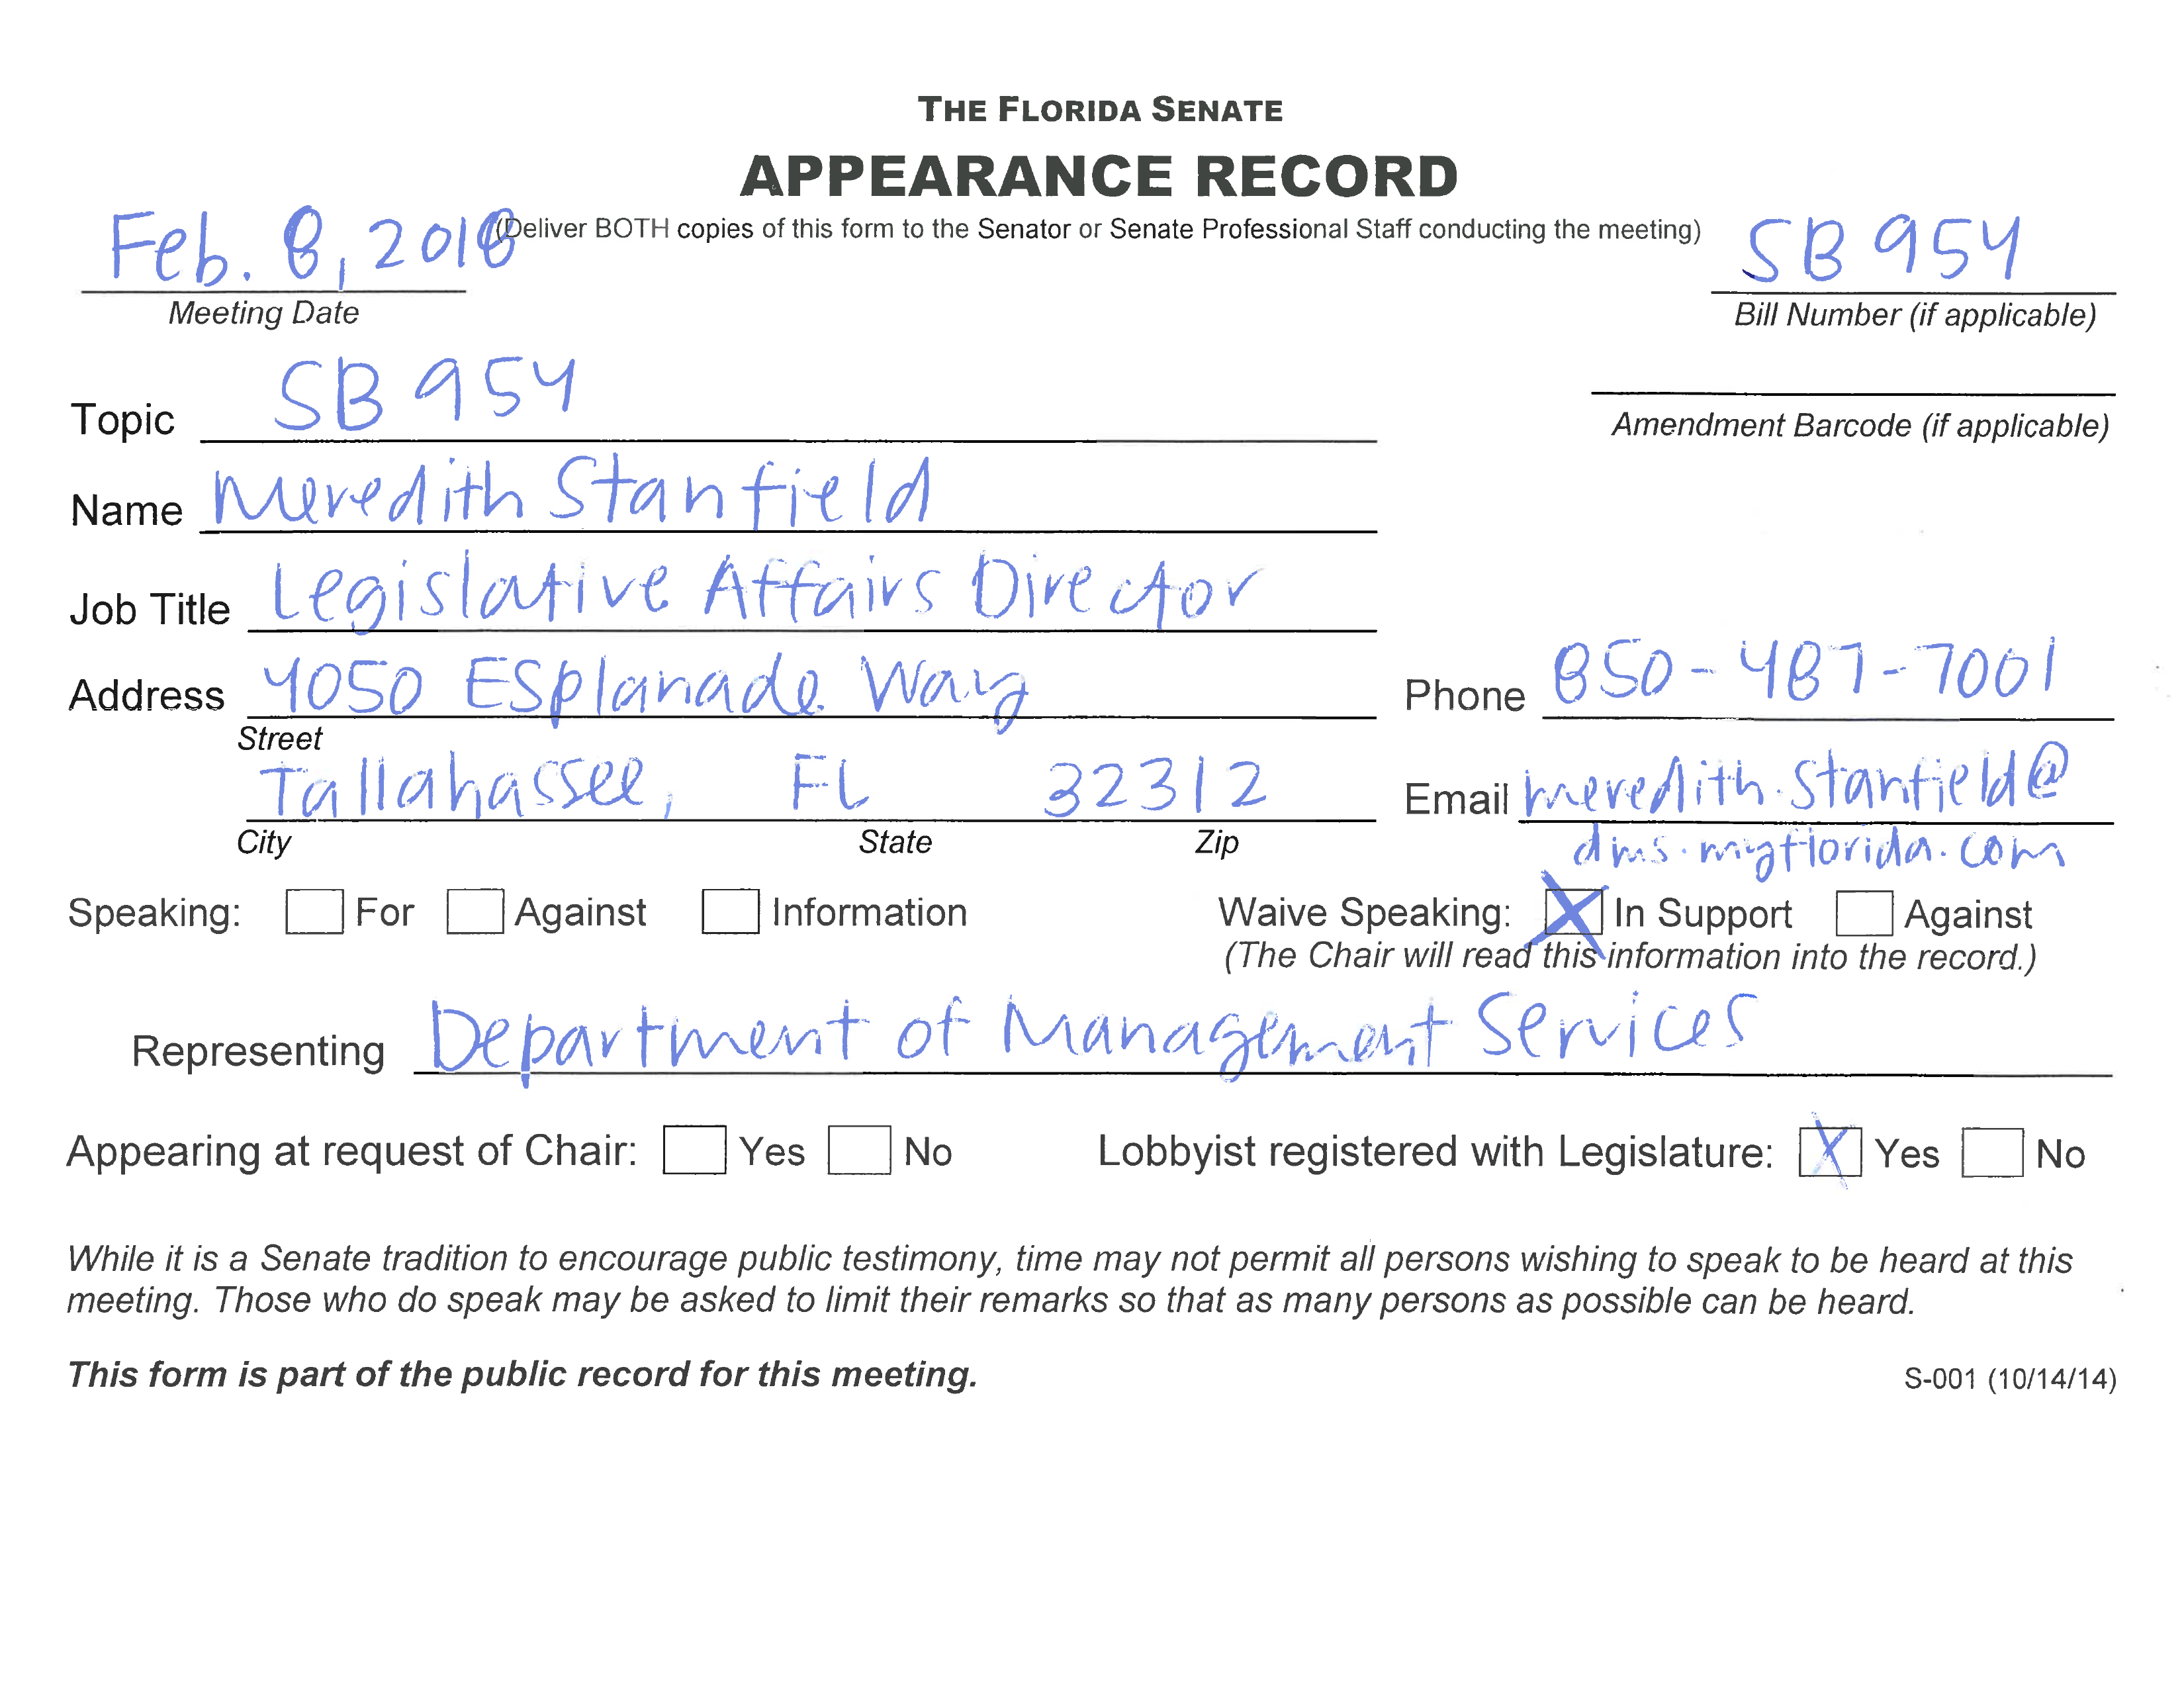 THE FLORIDA SENATE
APPEARANCE RECORD
(Deliver BOTH copies of this form to the Senator or Senate Professional Staff conducting the meeting)
Feb. 8, 2018
SB 954
Meeting Date
Bill Number (if applicable)
Topic SB 954
Amendment Barcode (if applicable)
Name Meredith Stanfield
Job Title Legislative Affairs Director
Address 4050 Esplanade Way
Phone 850-487-7001
Street
Tallahassee, FL 32312
Email meredith.stanfield@
City State Zip
dms.myflorida.com
Speaking: For Against Information Waive Speaking: X In Support Against
(The Chair will read this information into the record.)
Representing Department of Management Services
Appearing at request of Chair: Yes No Lobbyist registered with Legislature: X Yes No
While it is a Senate tradition to encourage public testimony, time may not permit all persons wishing to speak to be heard at this
meeting. Those who do speak may be asked to limit their remarks so that as many persons as possible can be heard.
This form is part of the public record for this meeting.
S-001 (10/14/14)